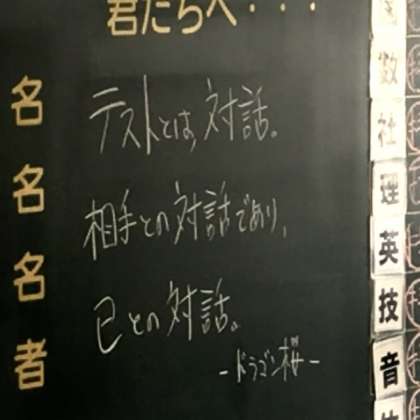 君たちへ・・・
テストとは、対話。
相手との対話であり、
己との対話。
-ドラゴン桜-
名
名
名
者
数
社
理
英
技
音